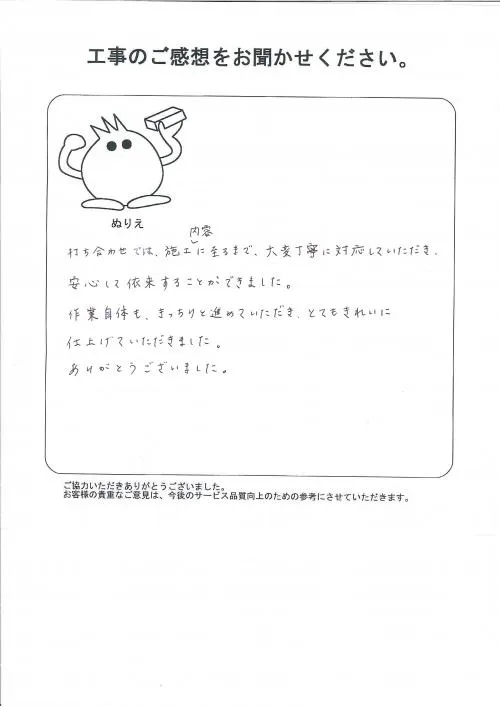 工事のご感想をお聞かせください。
ぬりえ
内容
打ち合わせでは、施工に至るまで、大変丁寧に対応していただき、
安心して依来することができました。
作業自体も、きっちりと進めていただき、とてもきれいに
仕上げていただきました。
ありがとうございました。
ご協力いただきありがとうございました。
お客様の貴重なご意見は、今後のサービス品質向上のための参考にさせていただきます。